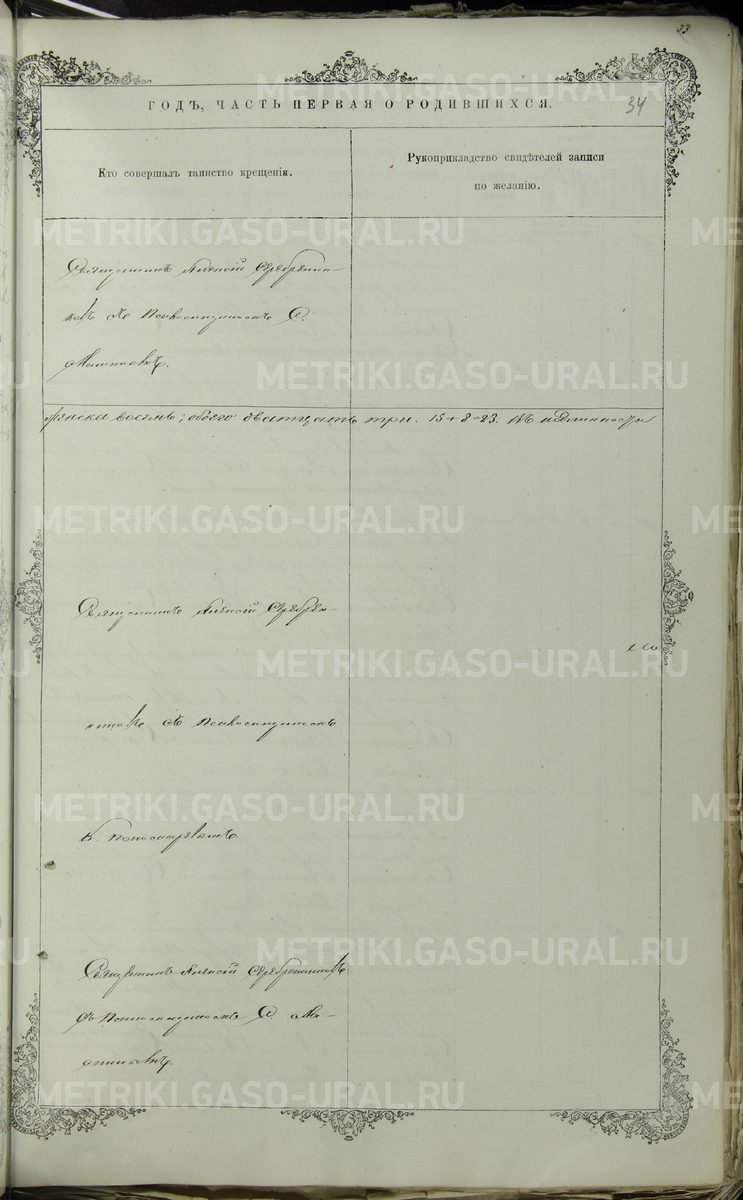 33
34
ГОДЪ, ЧАСТЬ ПЕРВАЯ О РОДИВШИХСЯ.
Кто совершалъ таинство крещенія.
Рукоприкладство свидѣтелей записи
по желанію.
Священникъ Алексій Серебренни-
ковъ съ Псаломщикомъ
женска восемь; обоего двадцать три. 15+8=23.
Священникъ Алексій Серебрен-
никовъ съ Псаломщикомъ
Священникъ Алексій Серебренниковъ
съ Псаломщикомъ
METRIKI.GASO-URAL.RU